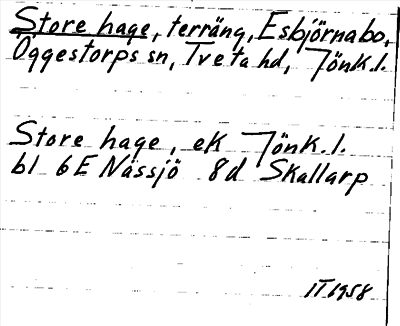 Store hage, terräng, Esbjörnabo,
Öggestorps sn, Tveta hd, Jönk.l.
Store hage, ek Jönk.l.
bl 6E Nässjö 8d Skallarp
IT 1958